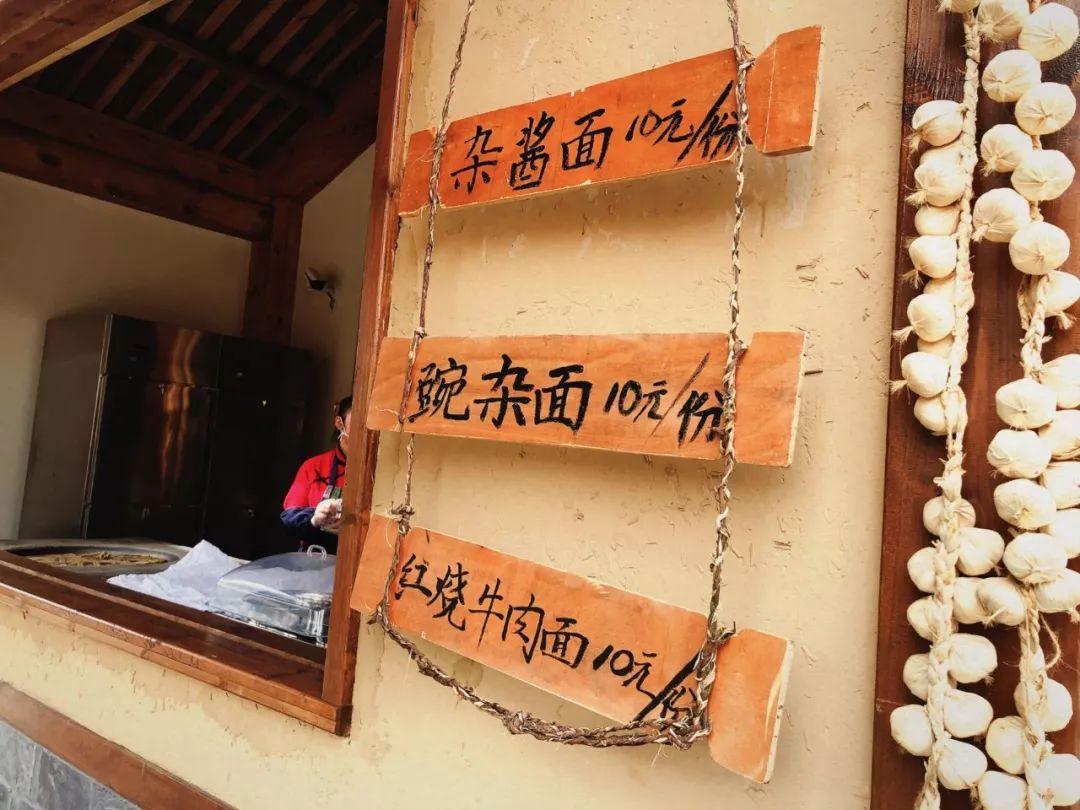 杂酱面 10元/份
豌杂面 10元/份
红烧牛肉面 10元/份